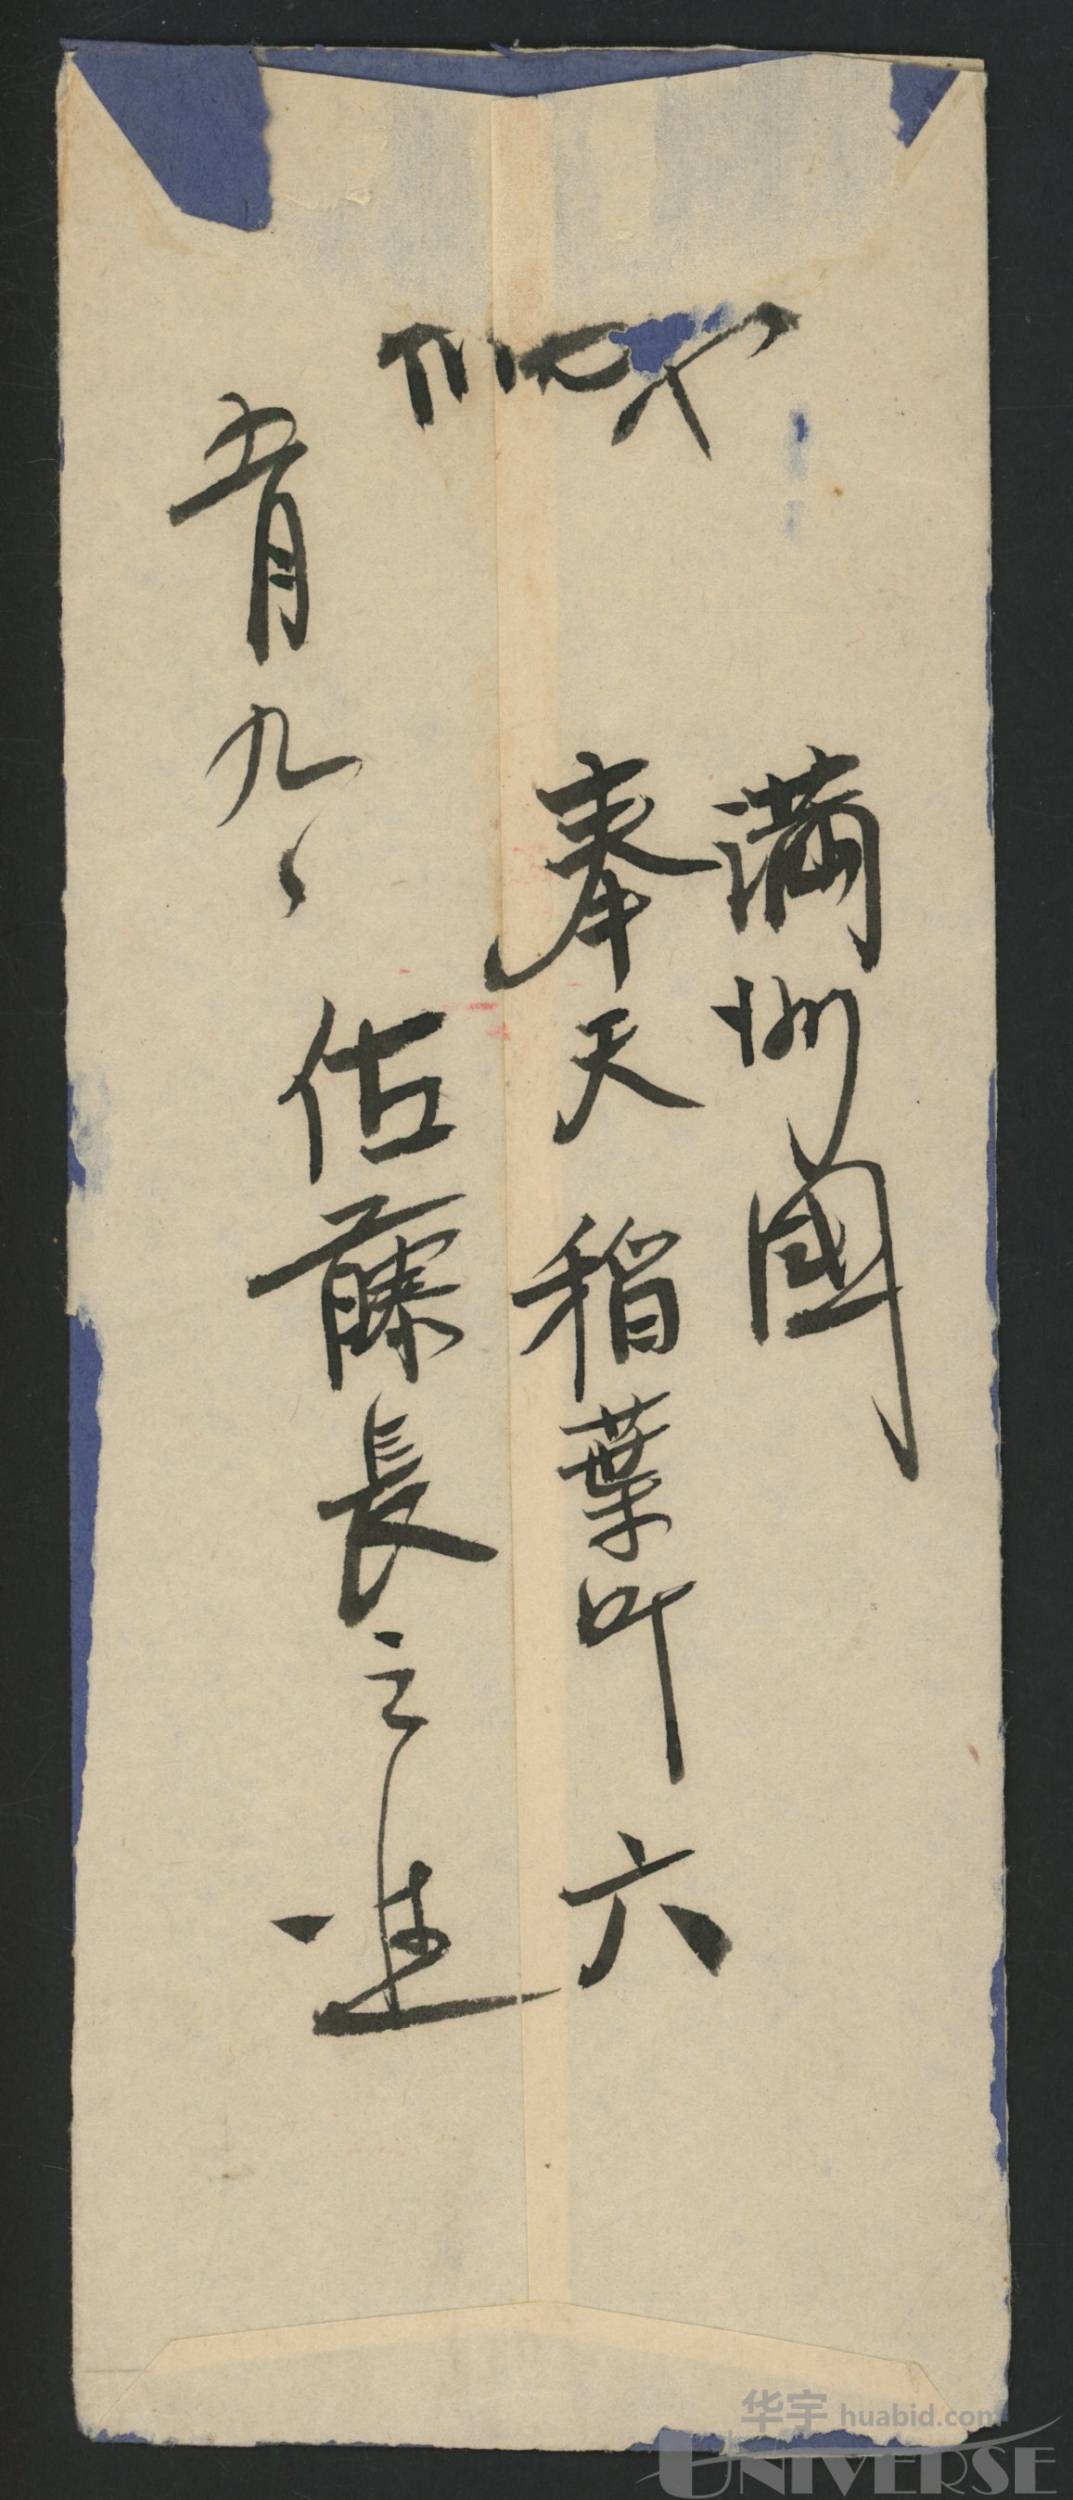 満洲國
奉天 稲葉町 六
佐藤長之進
五月九日
华宇 huabid.com
UNIVERSE